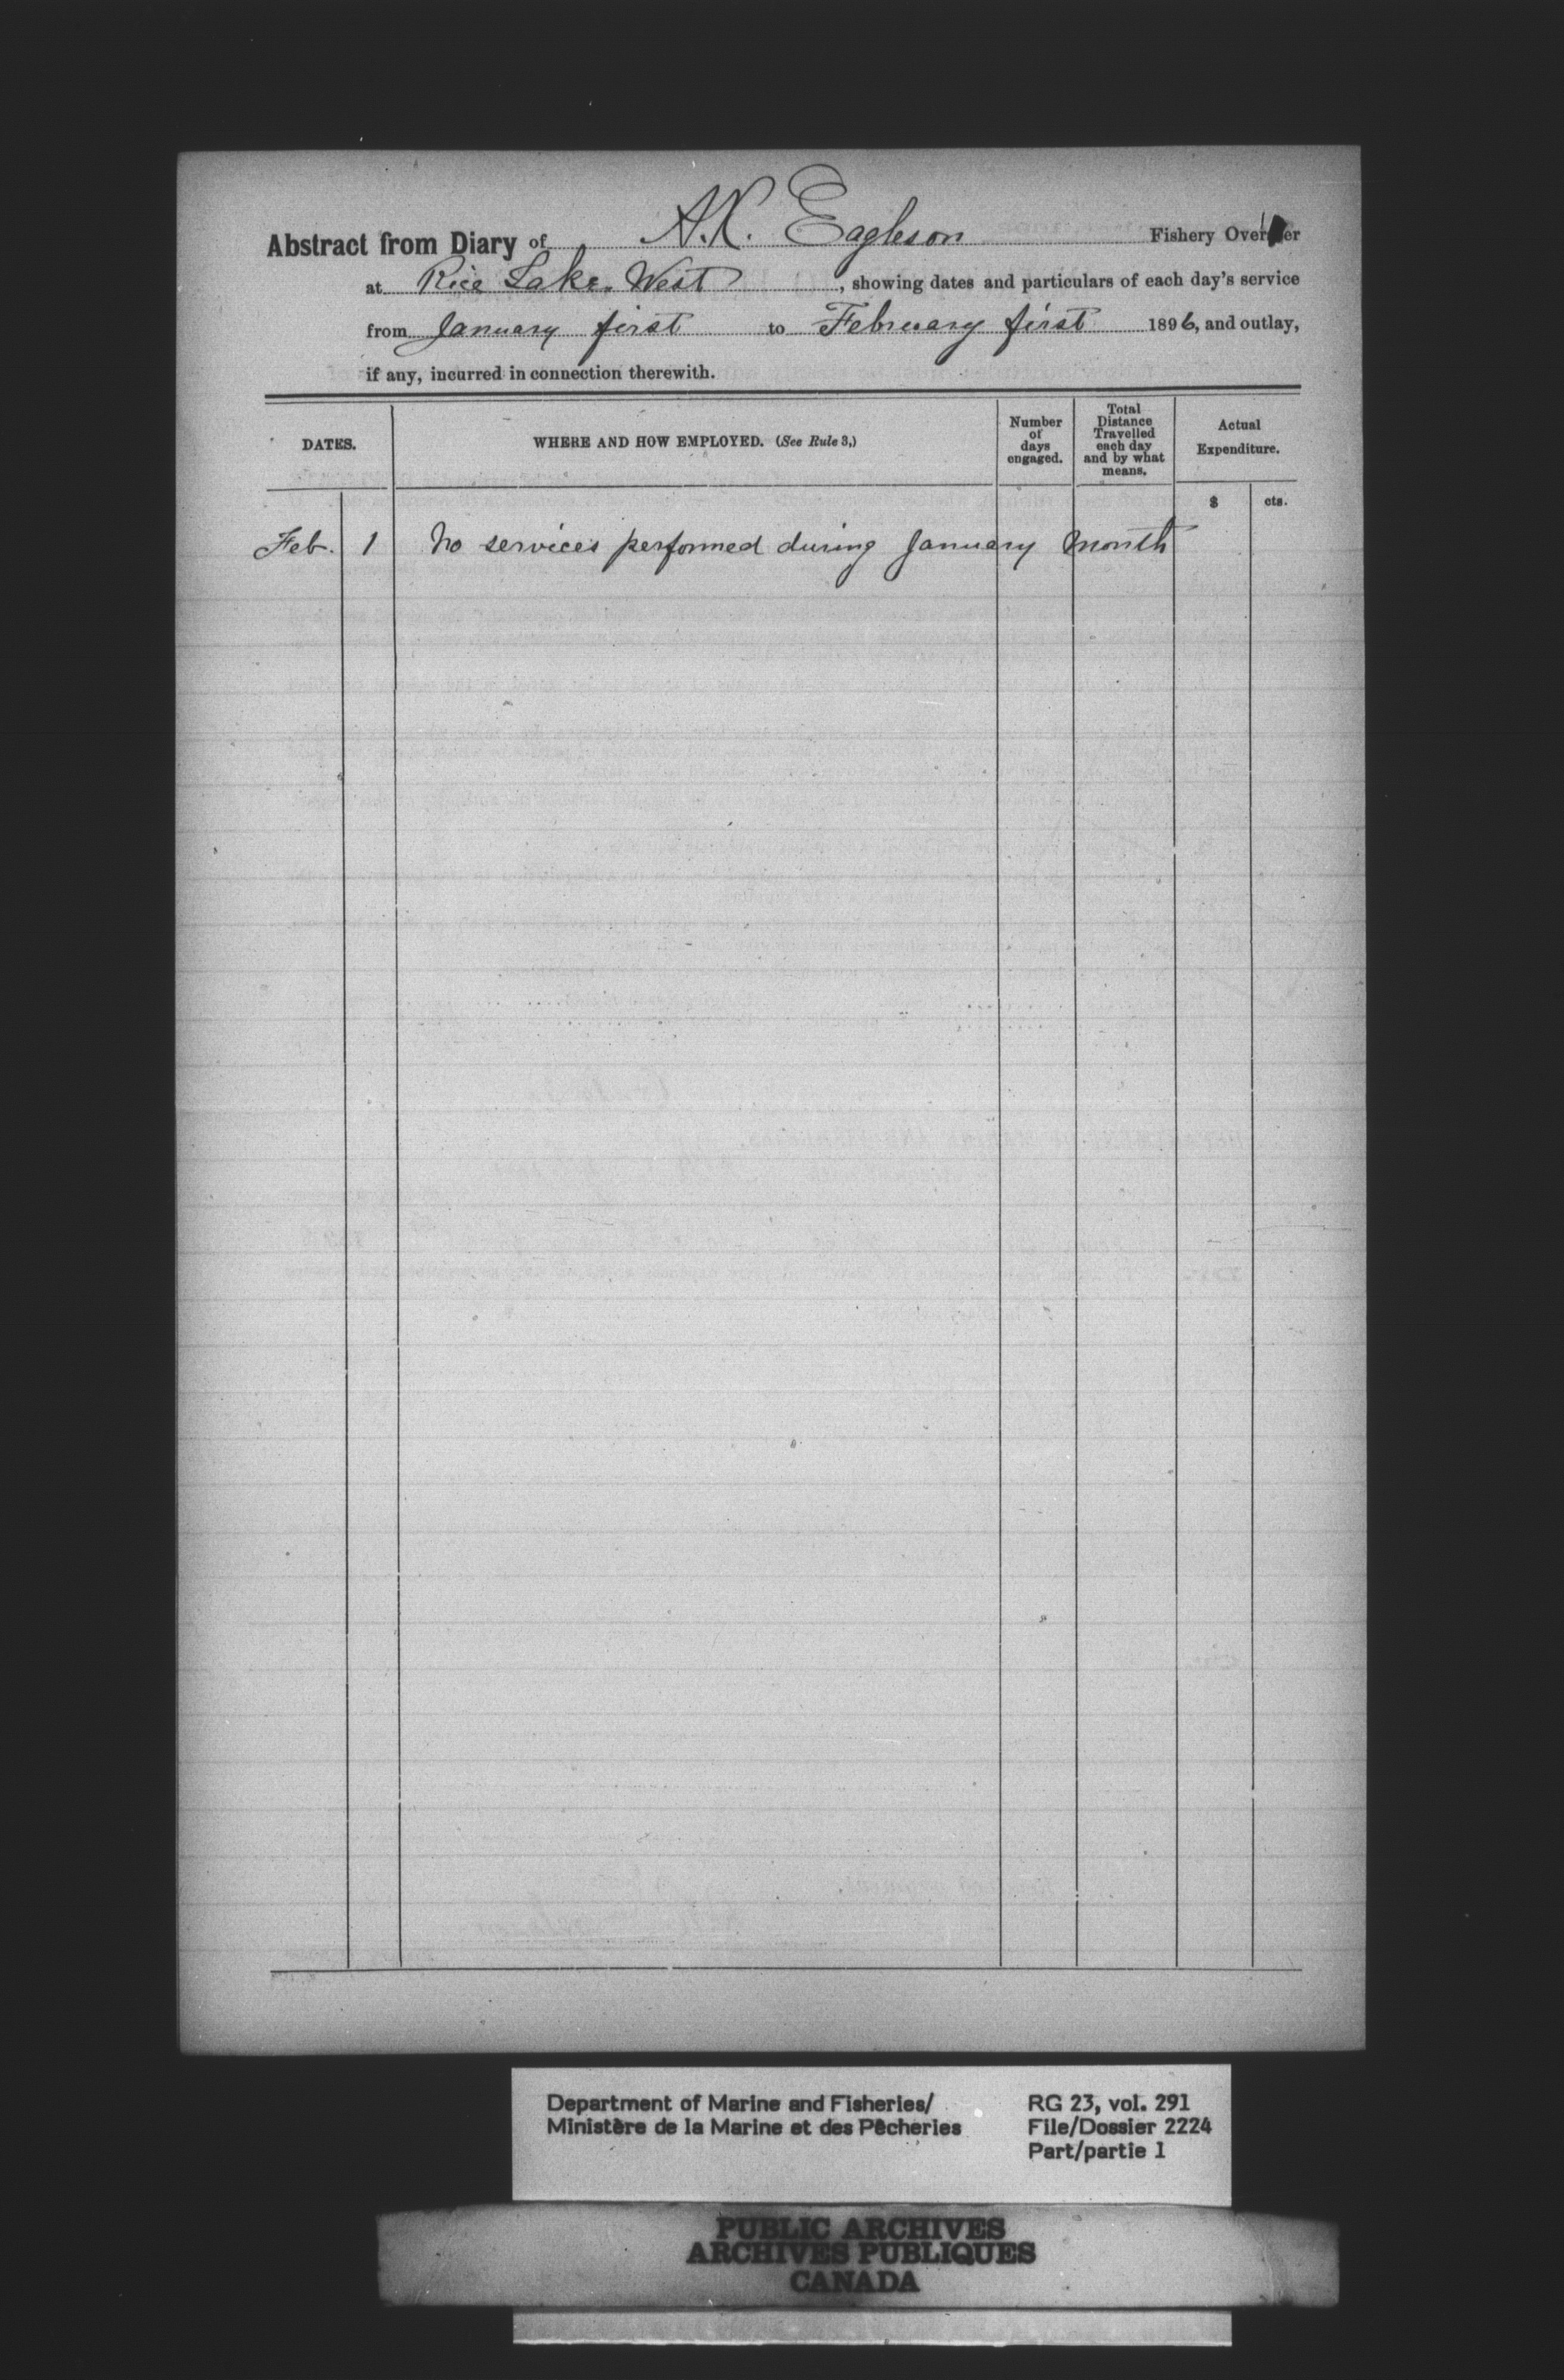 Abstract from Diary of A. K. Eagleson Fishery Over
at Rice Lake West, showing dates and particulars of each day's service
from January first to February first 1896, and outlay,
if any, incurred in connection therewith.
DATES.
WHERE AND HOW EMPLOYED. (See Rule 3,)
Number
of
days
engaged.
Total
Distance
Travelled
each day
and by what
means.
Actual
Expenditure.
$ cts.
Feb. 1 No services performed during January month
Department of Marine and Fisheries/
Ministère de la Marine et des Pêcheries
RG 23, vol. 291
File/Dossier 2224
Part/partie 1
PUBLIC ARCHIVES
ARCHIVES PUBLIQUES
CANADA